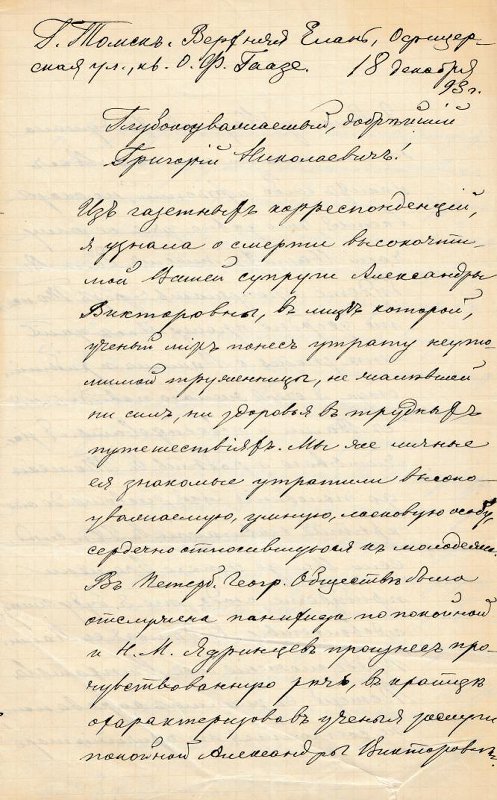 Г. Томскъ. Верхняя Елань, Офицер-
ская ул., кв. О. Ф. Гаазе. 18 декабря
93 г.
Глубокоуважаемый, добрѣйшій
Григорій Николаевичъ!
Изъ газетныхъ корреспонденцій,
я узнала о смерти высокочти-
мой Вашей супруги Александры
Викторовны, въ лицѣ которой,
ученый міръ понесъ утрату неуто-
мимой труженницы, не жалѣвшей
ни силъ, ни здоровья въ трудныхъ
путешествіяхъ. Мы же личные
ея знакомые утратили высоко-
уважаемую, умную, ласковую особу,
сердечно относившуюся къ молодежи.
Въ Петерб. Геогр. Обществѣ была
отслужена панихида по покойной
и Н. М. Ядринцевъ произнесъ про-
чувствованную рѣчь, въ краткѣ
охарактеризовавъ ученыя заслуги
покойной Александры Викторовны.